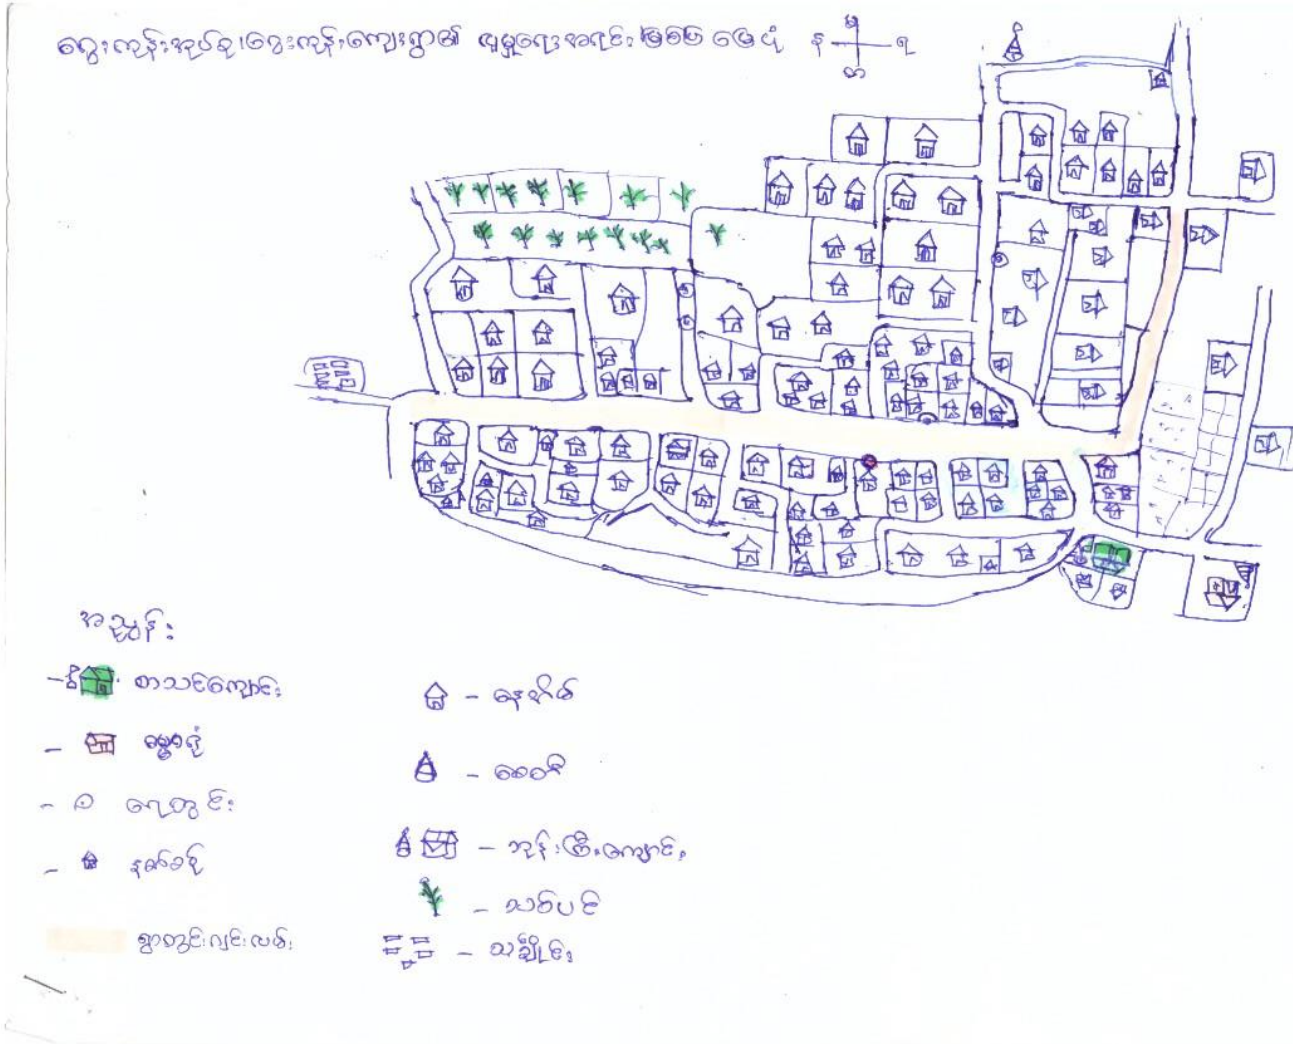 ကျေးရွာ၏ လူမှုရေးအရင်းအမြစ် မြေပုံ
မ
န
ရ
တ
အညွှန်း
- စာသင်ကျောင်း
- ဓမ္မာရုံ
- ရေတွင်း
- နတ်စင်
ရွာတွင်းလမ်း
- နေအိမ်
- စေတီ
- ဘုန်းကြီးကျောင်း
- သစ်ပင်
- သင်္ချိုင်း